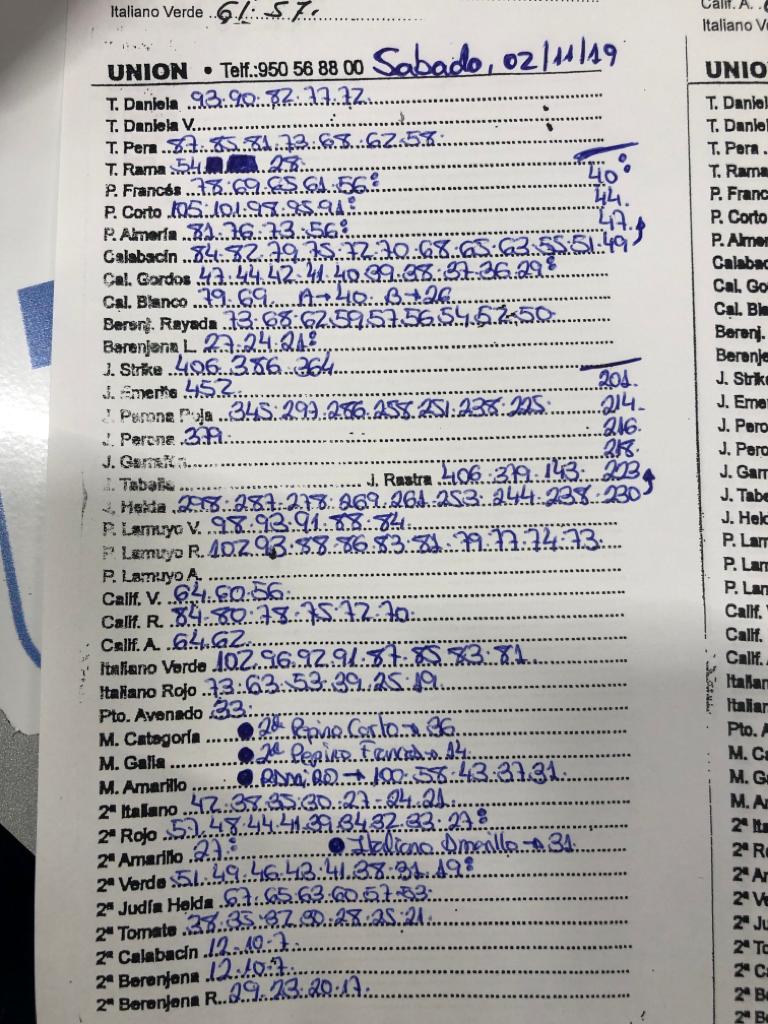 Italiano Verde 61. 57.
UNION • Telf.:950 56 88 00 Sabado, 02/11/19
T. Daniela 93.90.82.77.72
T. Daniela V.
T. Pera 87.85.81.73.68.62.58.
T. Rama 54 28.
P. Francés 78.69.65.61.56: 40:
P. Corto 105.101.98.95.91: 44.
P. Almería 81.76.73.56: 47.
Calabacín 84.82.79.75.72.70.68.65.63.55.51.49
Cal. Gordos 47.44.42.41.40.39.38.37.36.29:
Cal. Blanco 79.69. A→40. B→26
Berenj. Rayada 73.68.62.59.57.56.54.52.50.
Berenjena L. 27.24.21:
J. Strike 406.386.364
J. Emerite 452. 201.
J. Perona Roja 345.297.286.258.251.238.225. 214.
J. Perona 379. 216.
J. Garrafón 218.
J. Tabella J. Rastra 406.379.143. 223
J. Helda 298.287.278.269.261.253.244.238.230
P. Lamuyo V. 98.93.91.88.84.
P. Lamuyo R. 102.93.88.86.83.81.79.77.74.73.
P. Lamuyo A.
Calif. V. 64.60.56.
Calif. R. 84.80.78.75.72.70.
Calif. A. 64.62.
Italiano Verde 102.96.92.91.87.85.83.81.
Italiano Rojo 73.63.53.39.25.19.
Pto. Avenado 33.
M. Categoría • 2ª Pepino Corto → 36
M. Galia • 2ª Pepino Frances → 14.
M. Amarillo → 100.58.43.37.31.
2ª Italiano 47.38.35.30.27.24.21.
2ª Rojo 57.48.44.41.39.34.32.33.27:
2ª Amarillo 27: • Italiano Amarillo → 31.
2ª Verde 51.49.46.43.41.38.31.19:
2ª Judía Helda 67.65.63.60.57.53.
2ª Tomate 38.35.32.30.28.25.21.
2ª Calabacín 12.10.7.
2ª Berenjena 12.10.7.
2ª Berenjena R. 29.23.20.17.
Calif. A.
Italiano V
UNIO
T. Daniel
T. Daniel
T. Pera
T. Rama
P. Franc
P. Corto
P. Almer
Calabac
Cal. Go
Cal. Bla
Berenj.
Berenje
J. Strike
J. Eme
J. Pero
J. Pero
J. Garr
J. Tabe
J. Held
P. Lam
P. Lam
P. Lan
Calif.
Calif.
Calif.
Italian
Italian
Pto. A
M. Ca
M. G
M. A
2ª Ita
2ª R
2ª A
2ª Ve
2ª Ju
2ª To
2ª C
2ª B
2ª B